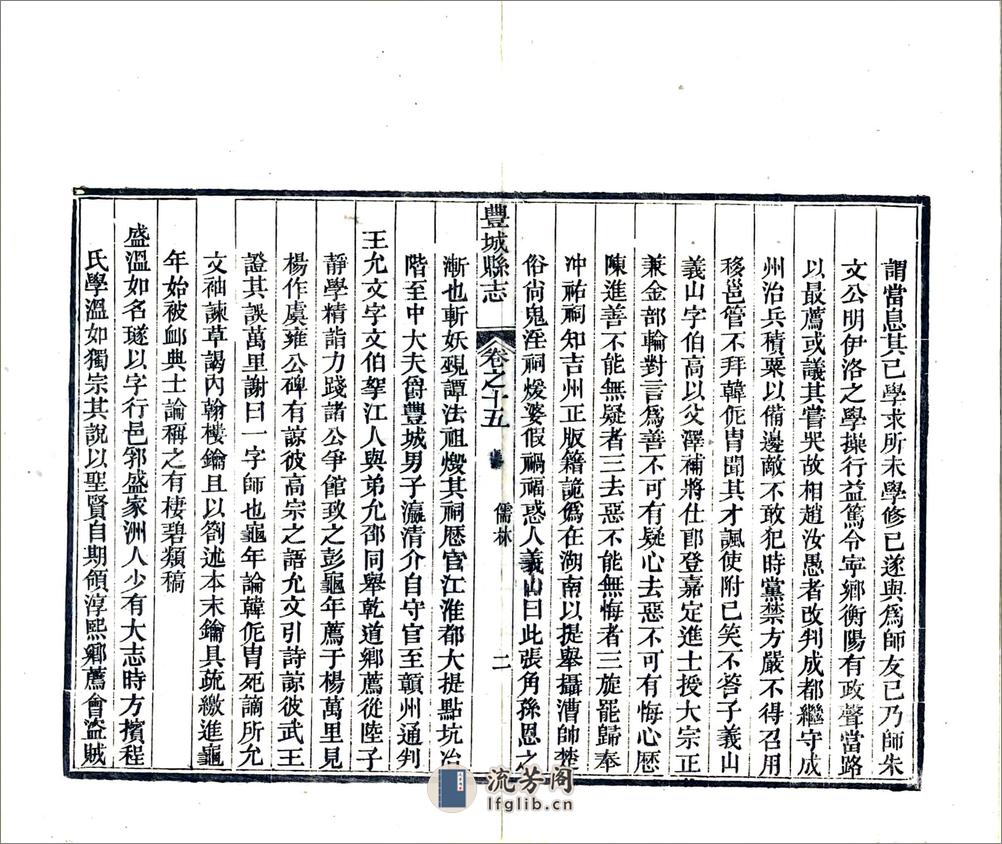 謂當息其已學求所未學修已遂與爲師友已乃師朱
文公明伊洛之學操行益篤令寧鄉衡陽有政聲當路
以最薦或議其嘗哭故相趙汝愚者改判成都繼守成
州治兵積粟以備邊敵不敢犯時黨禁方嚴不得召用
移邕管不拜韓侂胄聞其才諷使附已笑不答子義山
義山字伯高以父澤補將仕郎登嘉定進士授大宗正
兼金部輪對言爲善不可有疑心去惡不可有悔心歷
陳進善不能無疑者三去惡不能無悔者三旋罷歸奉
冲祐祠知吉州正版籍詭僞在湖南以提舉攝漕帥楚
俗尚鬼淫祠煖婆假禍福惑人義山曰此張角孫恩之
豐城縣志
卷之十五
儒林
二
漸也斬妖覡譚法祖燬其祠歷官江淮都大提點坑冶
階至中大夫爵豐城男子瀛清介自守官至贛州通判
王允文字文伯拏江人與弟允邵同舉乾道鄉薦從陸子
靜學精詣力踐諸公爭館致之彭龜年薦于楊萬里見
楊作虞雍公碑有諒彼高宗之語允文引詩諒彼武王
證其誤萬里謝曰一字師也龜年論韓侂胄死謫所允
文袖諫草謁內翰樓鑰且以劄述本末鑰具疏繳進龜
年始被卹典士論稱之有棲碧類稿
盛溫如名璲以字行邑郛盛家洲人少有大志時方擯程
氏學溫如獨宗其說以聖賢自期領淳熙鄉薦會盜賊
流芳阁
lfglib.cn